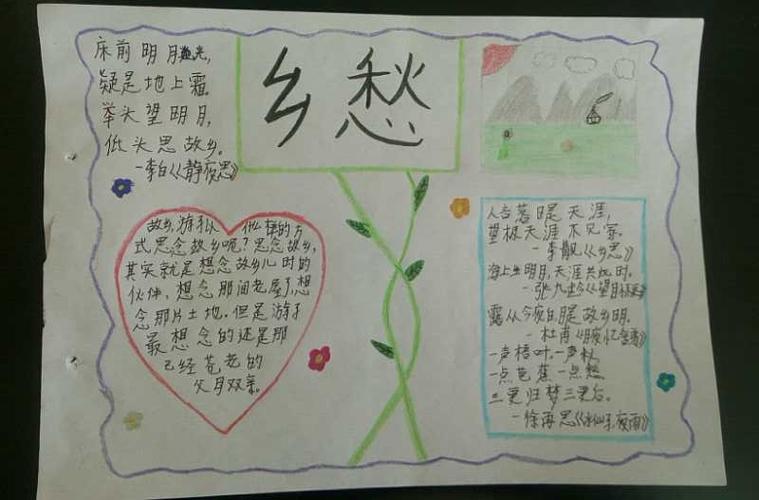 乡愁
床前明月光,
疑是地上霜。
举头望明月,
低头思故乡。
—李白《静夜思》
故乡,游子以 他样的方
式思念故乡呢?思念故乡,
其实就是想念故乡儿时的
伙伴,想念那间老屋了,想
念那片土地。但是游子
最想念的还是那
已经苍老的
父母双亲。
人言落日是天涯,
望极天涯不见家。
—李觏《乡思》
海上生明月,天涯共此时。
—张九龄《望月怀远》
露从今夜白,月是故乡明。
—杜甫《月夜忆舍弟》
一声梧叶,一声秋,
一点芭蕉一点愁,
三更归梦三更后。
—徐再思《水仙子,夜雨》